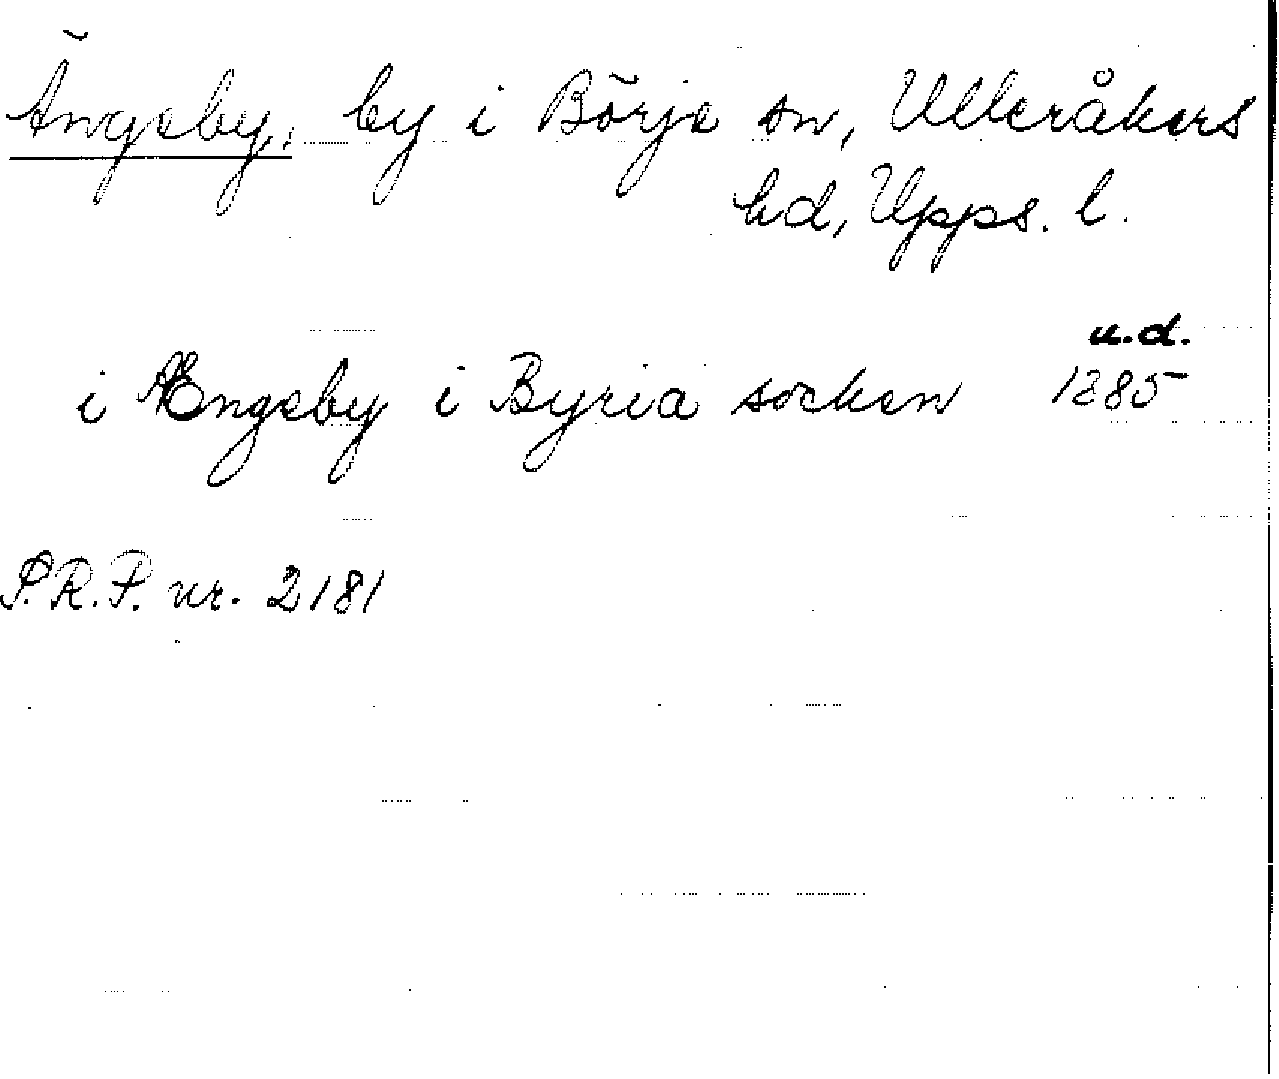 Ängeby, by i Börje sn, Ulleråkers
hd, Upps. l.
u.d.
i Ængeby i Byria socken 1385
S.R.P. nr. 2181